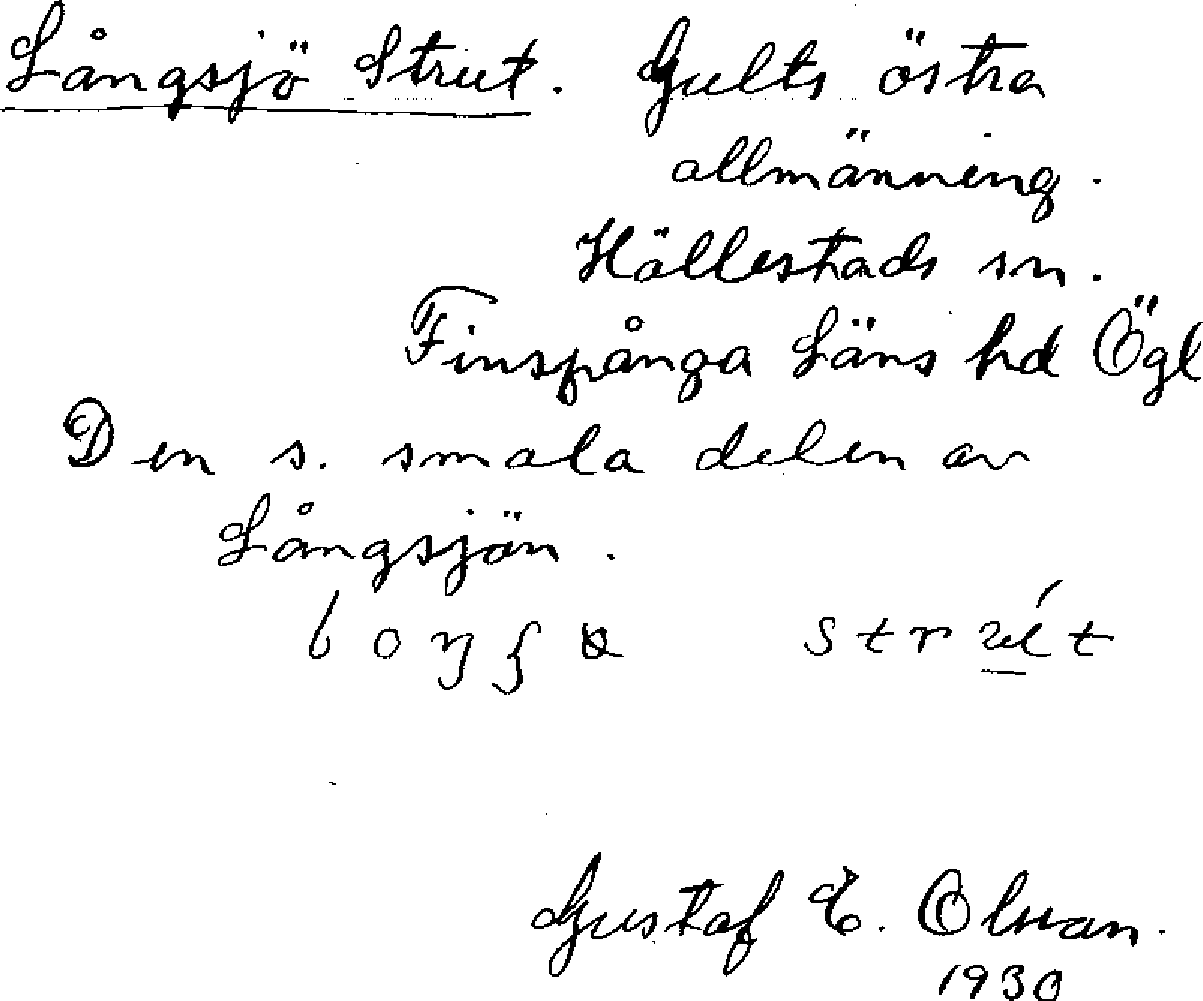 Långsjö Strut. Gults östra
allmänning.
Hällestads sn.
Finspånga Läns hd Ögl
Den s. smala delen av
Långsjön.
Gustaf E. Olsson.
1930